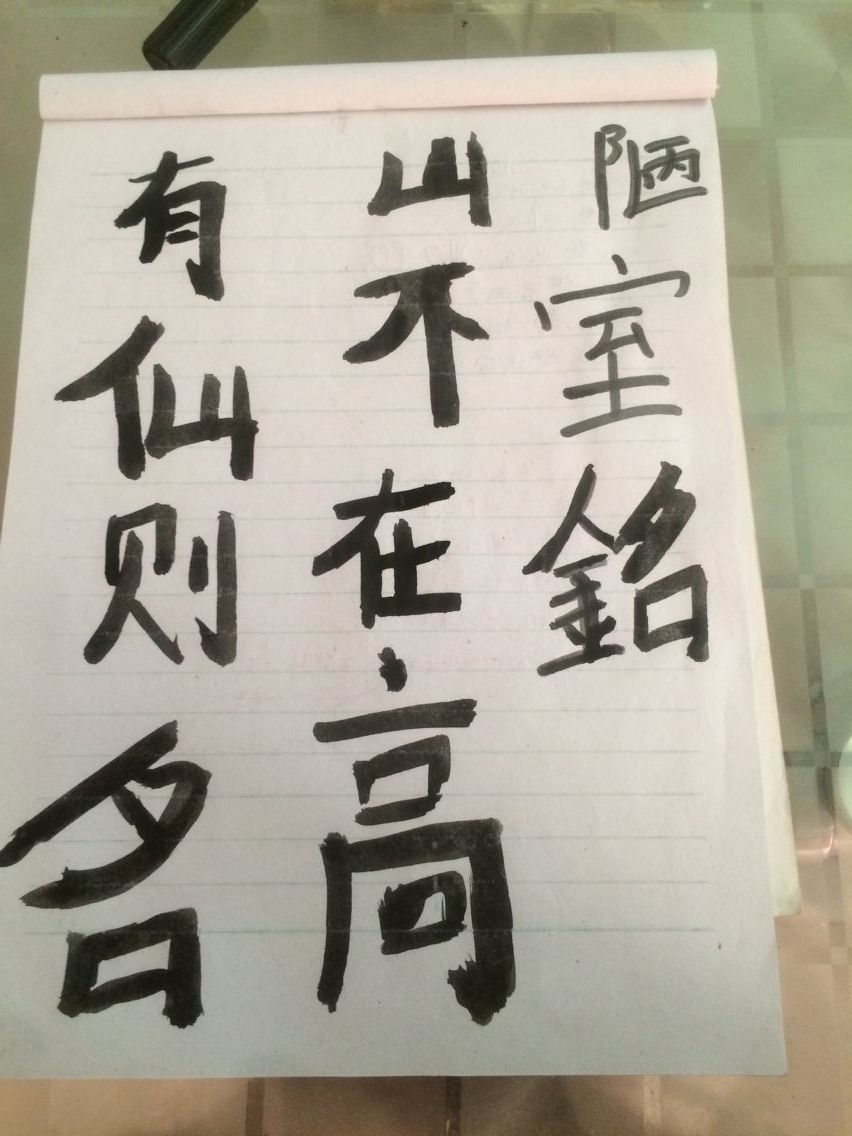 陋室銘
山不在高
有仙则名